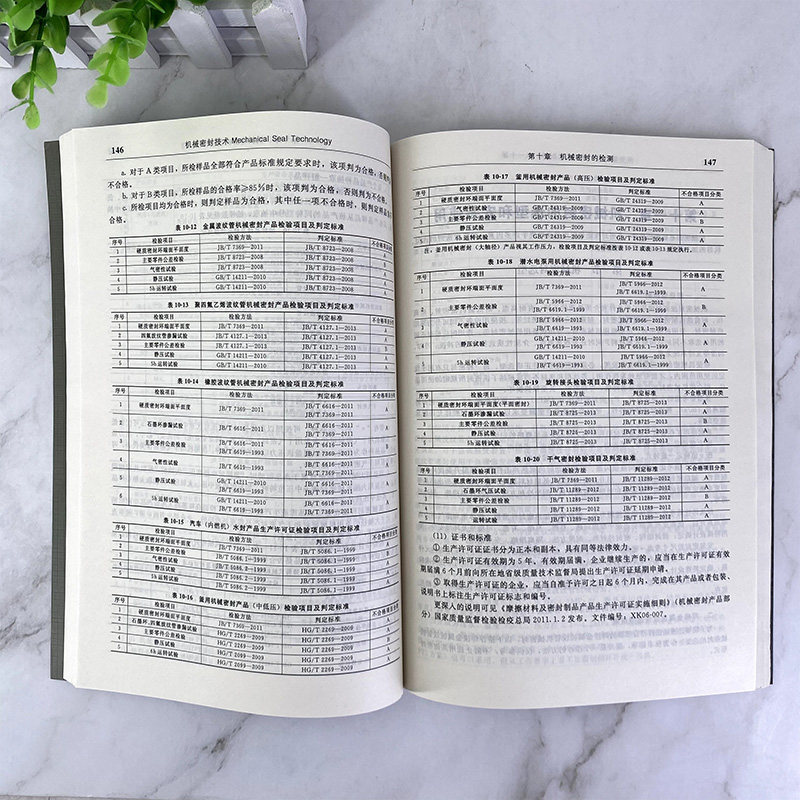 146
机械密封技术 Mechanical Seal Technology
a. 对于 A 类项目，所检样品全部符合产品标准规定要求时，该项判为合格，否则判
不合格。
b. 对于 B 类项目，所检样品的合格率≥85%时，该项判为合格，否则判为不合格。
c. 所检项目均为合格时，则判定样品为合格，其中任一项不合格时，则判定样品
合格。
表 10-12 金属波纹管机械密封产品检验项目及判定标准
序号 检验项目 检验方法 判定标准 不合格项目分类
1 硬质密封环端面平面度 JB/T 7369—2011 JB/T 8723—2008 A
2 主要零件公差检验 JB/T 8723—2008 JB/T 8723—2008
3 气密性试验 JB/T 8723—2008 JB/T 8723—2008
4 静压试验 GB/T 14211—2010 JB/T 8723—2008 A
5 5h 运转试验 GB/T 14211—2010 JB/T 8723—2008 A
表 10-13 聚四氟乙烯波纹管机械密封产品检验项目及判定标准
序号 检验项目 检验方法 判定标准
1 硬质密封环端面平面度 JB/T 7369—2011 JB/T 4127.1—2013
2 四氟波纹管渗漏试验 JB/T 4127.1—2013 JB/T 4127.1—2013
3 主要零件公差检验 JB/T 4127.1—2013 JB/T 4127.1—2013
4 静压试验 GB/T 14211—2010 JB/T 4127.1—2013 A
5 5h 运转试验 GB/T 14211—2010 JB/T 4127.1—2013 A
表 10-14 橡胶波纹管机械密封产品检验项目及判定标准
序号 检验项目 检验方法 判定标准
1 硬质密封环端面平面度 JB/T 7369—2011 JB/T 6616—2011
JB/T 7369—2011
2 石墨环渗漏试验 JB/T 7369—2011 JB/T 6616—2011
JB/T 7369—2011
3 主要零件公差检验 JB/T 6616—2011
JB/T 6619—1993
4 气密性试验 JB/T 6616—2011
JB/T 6619—1993
5 静压试验 GB/T 14211—2010
JB/T 6619—1993
6 5h 运转试验 GB/T 14211—2010
JB/T 6619—1993
表 10-15 汽车（内燃机）水封产品生产许可证检验项目及判定标准
序号 检验项目 检验方法 判定标准
1 硬质密封环端面平面度 JB/T 7369—2011 JB/T 5086.1—1999
2 主要零件公差检验 JB/T 5086.1—1999
3 气密性试验 JB/T 5086.2—1999 JB/T 5086.1—1999
4 静压试验 JB/T 5086.1—1999
5 运转试验 JB/T 5086.1—1999
表 10-16 釜用机械密封产品（中低压）检验项目及判定标准
序号 检验项目 检验方法 判定标准
1 硬质密封环端面平面度 JB/T 7369—2011 HG/T 2269—2009
2 石墨环、四氟波纹管渗漏试验 HG/T 2269—2009
3 主要零件公差检验 HG/T 2269—2009
4 静压试验 HG/T 2269—2009
5 HG/T 2269—2009
第十章 机械密封的检测
147
表 10-17 釜用机械密封产品（高压）检验项目及判定标准
序号 检验项目 检验方法 判定标准 不合格项目分类
1 硬质密封环端面平面度 JB/T 7369—2011 GB/T 24319—2009 A
2 气密性试验 GB/T 24319—2009 GB/T 24319—2009 A
3 主要零件公差检验 GB/T 24319—2009 GB/T 24319—2009 B
4 静压试验 GB/T 24319—2009 GB/T 24319—2009 A
5 6h 运转试验 GB/T 24319—2009 GB/T 24319—2009 A
注：釜用机械密封（大轴径）产品视其工作压力，检验项目及判定标准按表 10-12 或表 10-13 规定执行。
表 10-18 潜水电泵用机械密封产品检验项目及判定标准
序号 检验项目 检验方法 判定标准 不合格项目分类
1 硬质密封环端面平面度 JB/T 7369—2011 JB/T 5966—2012
JB/T 6619.1—1999 A
2 主要零件公差检验 JB/T 5966—2012
JB/T 6619.1—1999 JB/T 5966—2012
JB/T 6619.1—1999 B
3 气密性试验 JB/T 5966—2012
JB/T 6619.1—1999 JB/T 5966—2012
JB/T 6619.1—1999 A
4 静压试验 GB/T 14211—2010
JB/T 6619.1—1999 JB/T 5966—2012
JB/T 6619.1—1999 A
5 5h 运转试验 GB/T 14211—2010
JB/T 6619.1—1999 JB/T 5966—2012
JB/T 6619.1—1999 A
表 10-19 旋转接头检验项目及判定标准
序号 检验项目 检验方法 判定标准 不合格项目分类
1 硬质密封环端面平面度(平面密封) JB/T 7369—2011 JB/T 8725—2013 A
2 石墨环渗漏试验 JB/T 8725—2013 JB/T 8725—2013 A
3 主要零件公差检验 JB/T 8725—2013 JB/T 8725—2013 B
4 静压试验 JB/T 8725—2013 JB/T 8726—2013 A
5 5h 运转试验 JB/T 8725—2013 JB/T 8725—2013 A
表 10-20 干气密封检验项目及判定标准
序号 检验项目 检验方法 判定标准 不合格项目分类
1 硬质密封环端面平面度 JB/T 7369—2011 JB/T 11289—2012 A
2 石墨环气压试验 JB/T 11289—2012 JB/T 11289—2012 A
3 主要零件公差检验 JB/T 11289—2012 JB/T 11289—2012 B
4 静压试验 JB/T 11289—2012 JB/T 11289—2012 A
5 运转试验 JB/T 11289—2012 JB/T 11289—2012 A
（11）证书和标准
① 生产许可证证书分为正本和副本，具有同等法律效力。
② 生产许可证有效期为 5 年。有效期届满，企业继续生产的，应当在生产许可证有效
期届满 6 个月前向所在地省级质量技术监督局提出生产许可证延期申请。
③ 取得生产许可证的企业，应当自准予许可之日起 6 个月内，完成在其产品或者包装、
说明书上标注生产许可证标志和编号。
更深入的说明可见《摩擦材料及密封制品产品生产许可证实施细则》（机械密封产品部
分）国家质量监督检验检疫总局 2011.1.2 发布。文件编号：XK06-007。